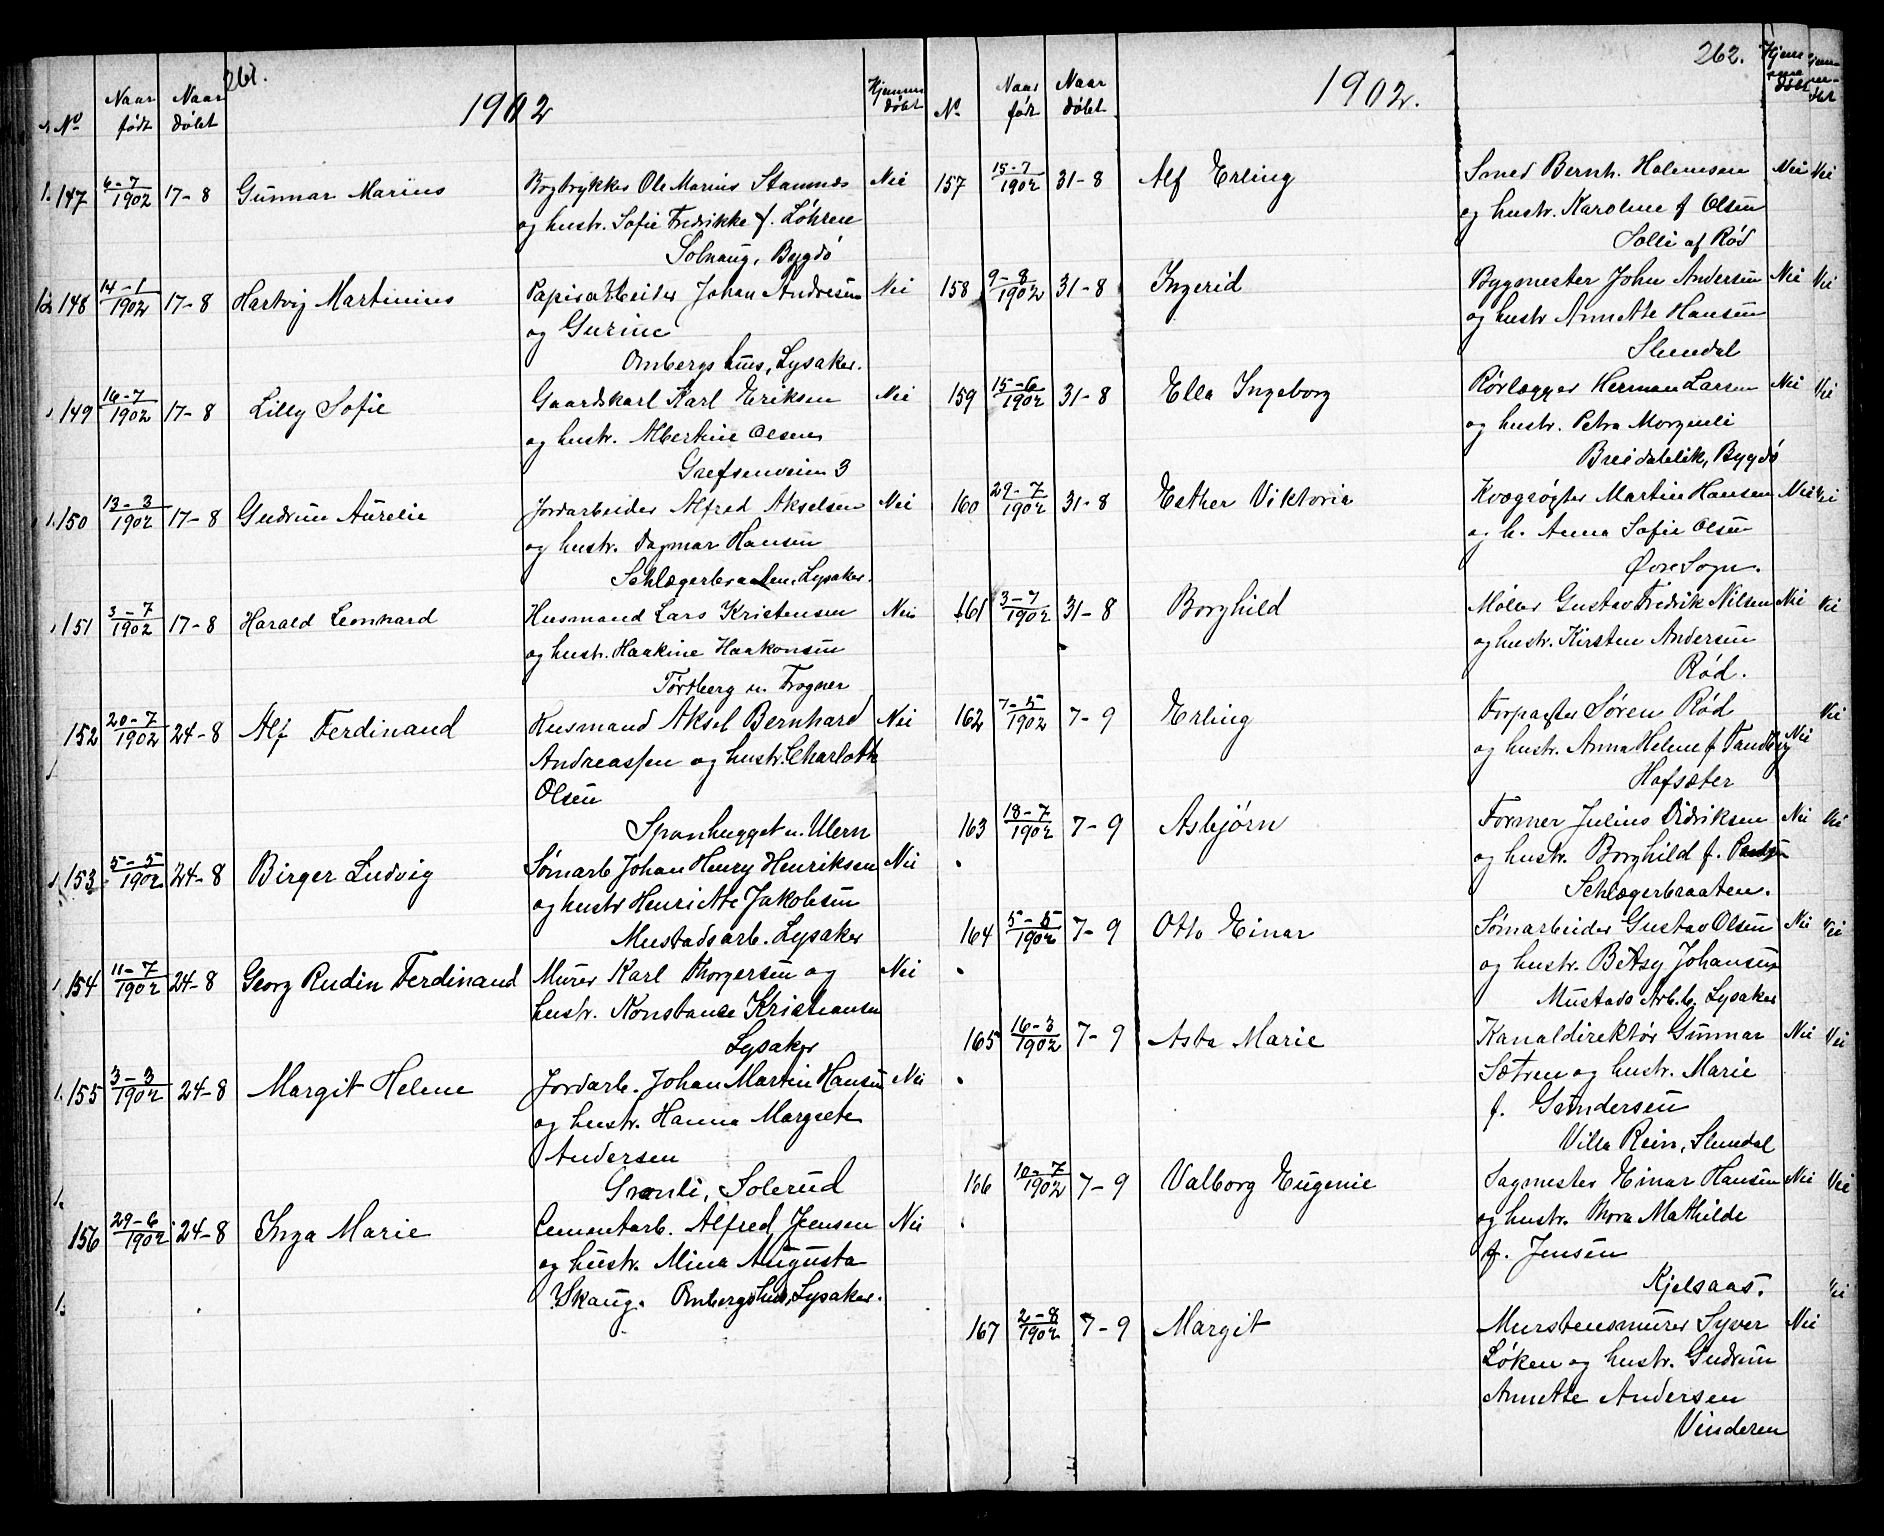 261.
1902
No Naar født Naar døbt Hjemmedøbt
147 6-7 1902 17-8 Gunnar Marius Bogtrykker Ole Marius Stamnæs Nei
og hustr. Sofie Fredrikke f. Løhren
Solhaug, Bygdø
148 14-1 1902 17-8 Hartvig Martinius Papirarbeider Johan Andresen Nei
og Gurine
Ombergs hus, Lysaker.
149 16-7 1902 17-8 Lilly Sofie Gaardskarl Karl Eriksen Nei
og hustr. Albertine Olsen
Grefsenveien 3
150 13-3 1902 17-8 Gudrun Aurelie Jordarbeider Alfred Akselsen Nei
og hustr. Dagmar Hansen
Schlægerbraaten, Lysaker.
151 3-7 1902 17-8 Harald Leonhard Husmand Lars Kristensen Nei
og hustr. Haakine Haakonsen
Tørtberg u. Frogner
152 20-7 1902 24-8 Alf Ferdinand Husmand Aksel Bernhard Nei
Andreassen og hustr. Charlotte
Olsen
Sponhugget u. Ulern
153 5-5 1902 24-8 Birger Ludvig Sømarb Johan Henry Henriksen Nei
og hustr Henriette Jakobsen
Mustadsarb. Lysaker
154 11-7 1902 24-8 Georg Rudin Ferdinand Murer Karl Thorgersen og Nei
hustr. Konstanse Kristiansen
Lysaker
155 3-3 1902 24-8 Margit Helene Jordarb. Johan Martin Hansen Nei
og hustr. Hanna Margrete
Andersen
Grønli, Solerud
156 29-6 1902 24-8 Inga Marie Cementarb. Alfred Jensen Nei
og hustr. Mina Augusta
Skaug. Ombergs hus, Lysaker.
262.
1902.
No Naar født Naar døbt Hjemmedøbt
157 15-7 1902 31-8 Alf Erling Smed Bernh. Halvorsen Nei
og hustr. Karoline f Olsen
Solli af Rød
158 9-8 1902 31-8 Ingerid Bygmester John Andersen Nei
og hustr Annette Hansen
Slemdal
159 15-6 1902 31-8 Ella Ingeborg Rørlægger Herman Larsen Nei
og hustr. Petra Morgenli
Breidablik, Bygdø
160 29-7 1902 31-8 Esther Viktoria Kvægrøgter Martin Hansen Nei
og h. Anna Sofie Olsen
Øvre Sogn.
161 3-7 1902 31-8 Borghild Møller Gustav Fredrik Nilsen Nei
og hustr. Kirsten Andersen
Rød.
162 7-5 1902 7-9 Erling Forpagter Søren Rød
og hustr. Anna Helene f Tandberg Nei
Hofsæter
163 18-7 1902 7-9 Asbjørn Former Julius Didriksen Nei
og hustr. Borghild f.
Schlægerbraaten.
164 5-5 1902 7-9 Otto Einar Sømarbeider Gustav Olsen Nei
og hustr. Betsy Johansen
Mustads Arb.b. Lysaker
165 16-3 1902 7-9 Asta Marie Kanaldirektør Gunnar Nei
Sætren og hustr. Marie
f. Gundersen
Villa Rein, Slemdal
166 10-7 1902 7-9 Valborg Eugenie Sagmester Einar Hansen Nei
og hustr. Thora Mathilde
f. Jensen
Kjelsaas.
167 2-8 1902 7-9 Margit Murstensmurer Syver Nei
Løken og hustr. Gudrun
Annette Andersen
Vinderen